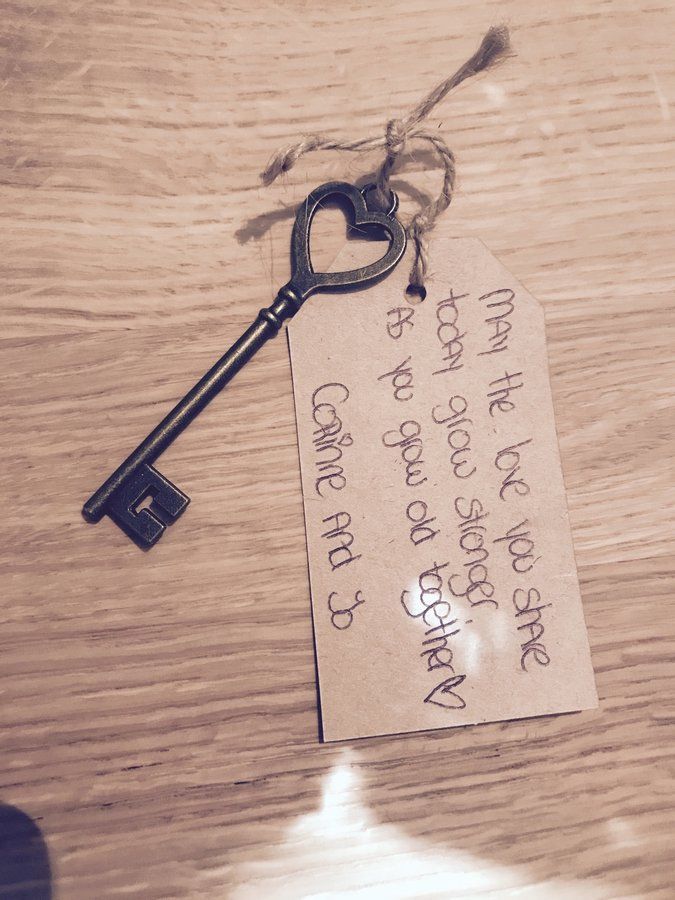 MAY the love you share
today grow stronger
As you grow old together♡
Corinne And Jo